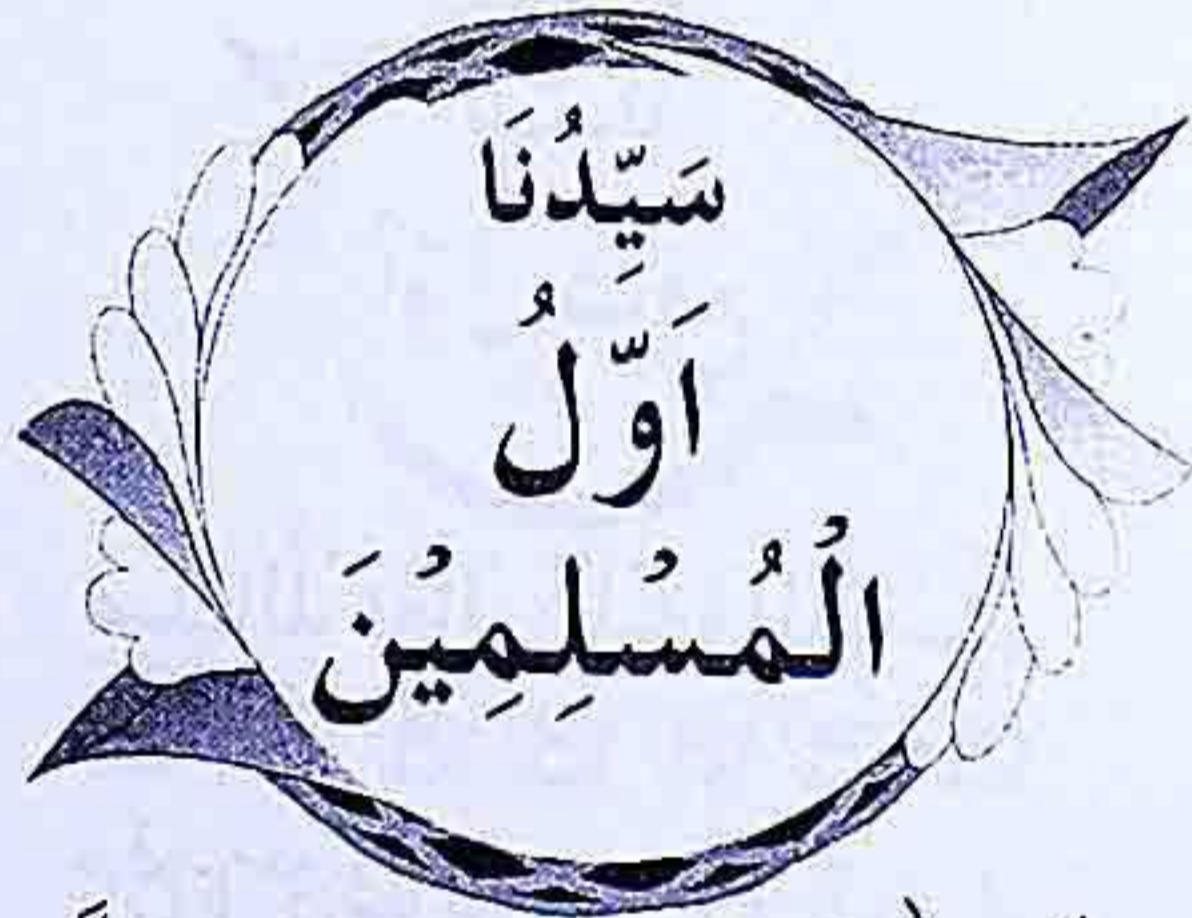 سَيِّدُنَا
اَوَّلُ
الْمُسْلِمِيْنَ